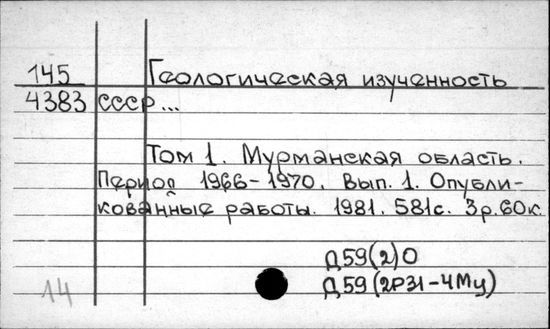 145 Геологическая изученность
4383 СССР...
Том 1. Мурманская область.
Период 1966-1970. Вып. 1. Опубли-
кованные работы. 1981. 581с. 3р.60к.
Д59(2)0
Д59(2Р31-4Мц)
14